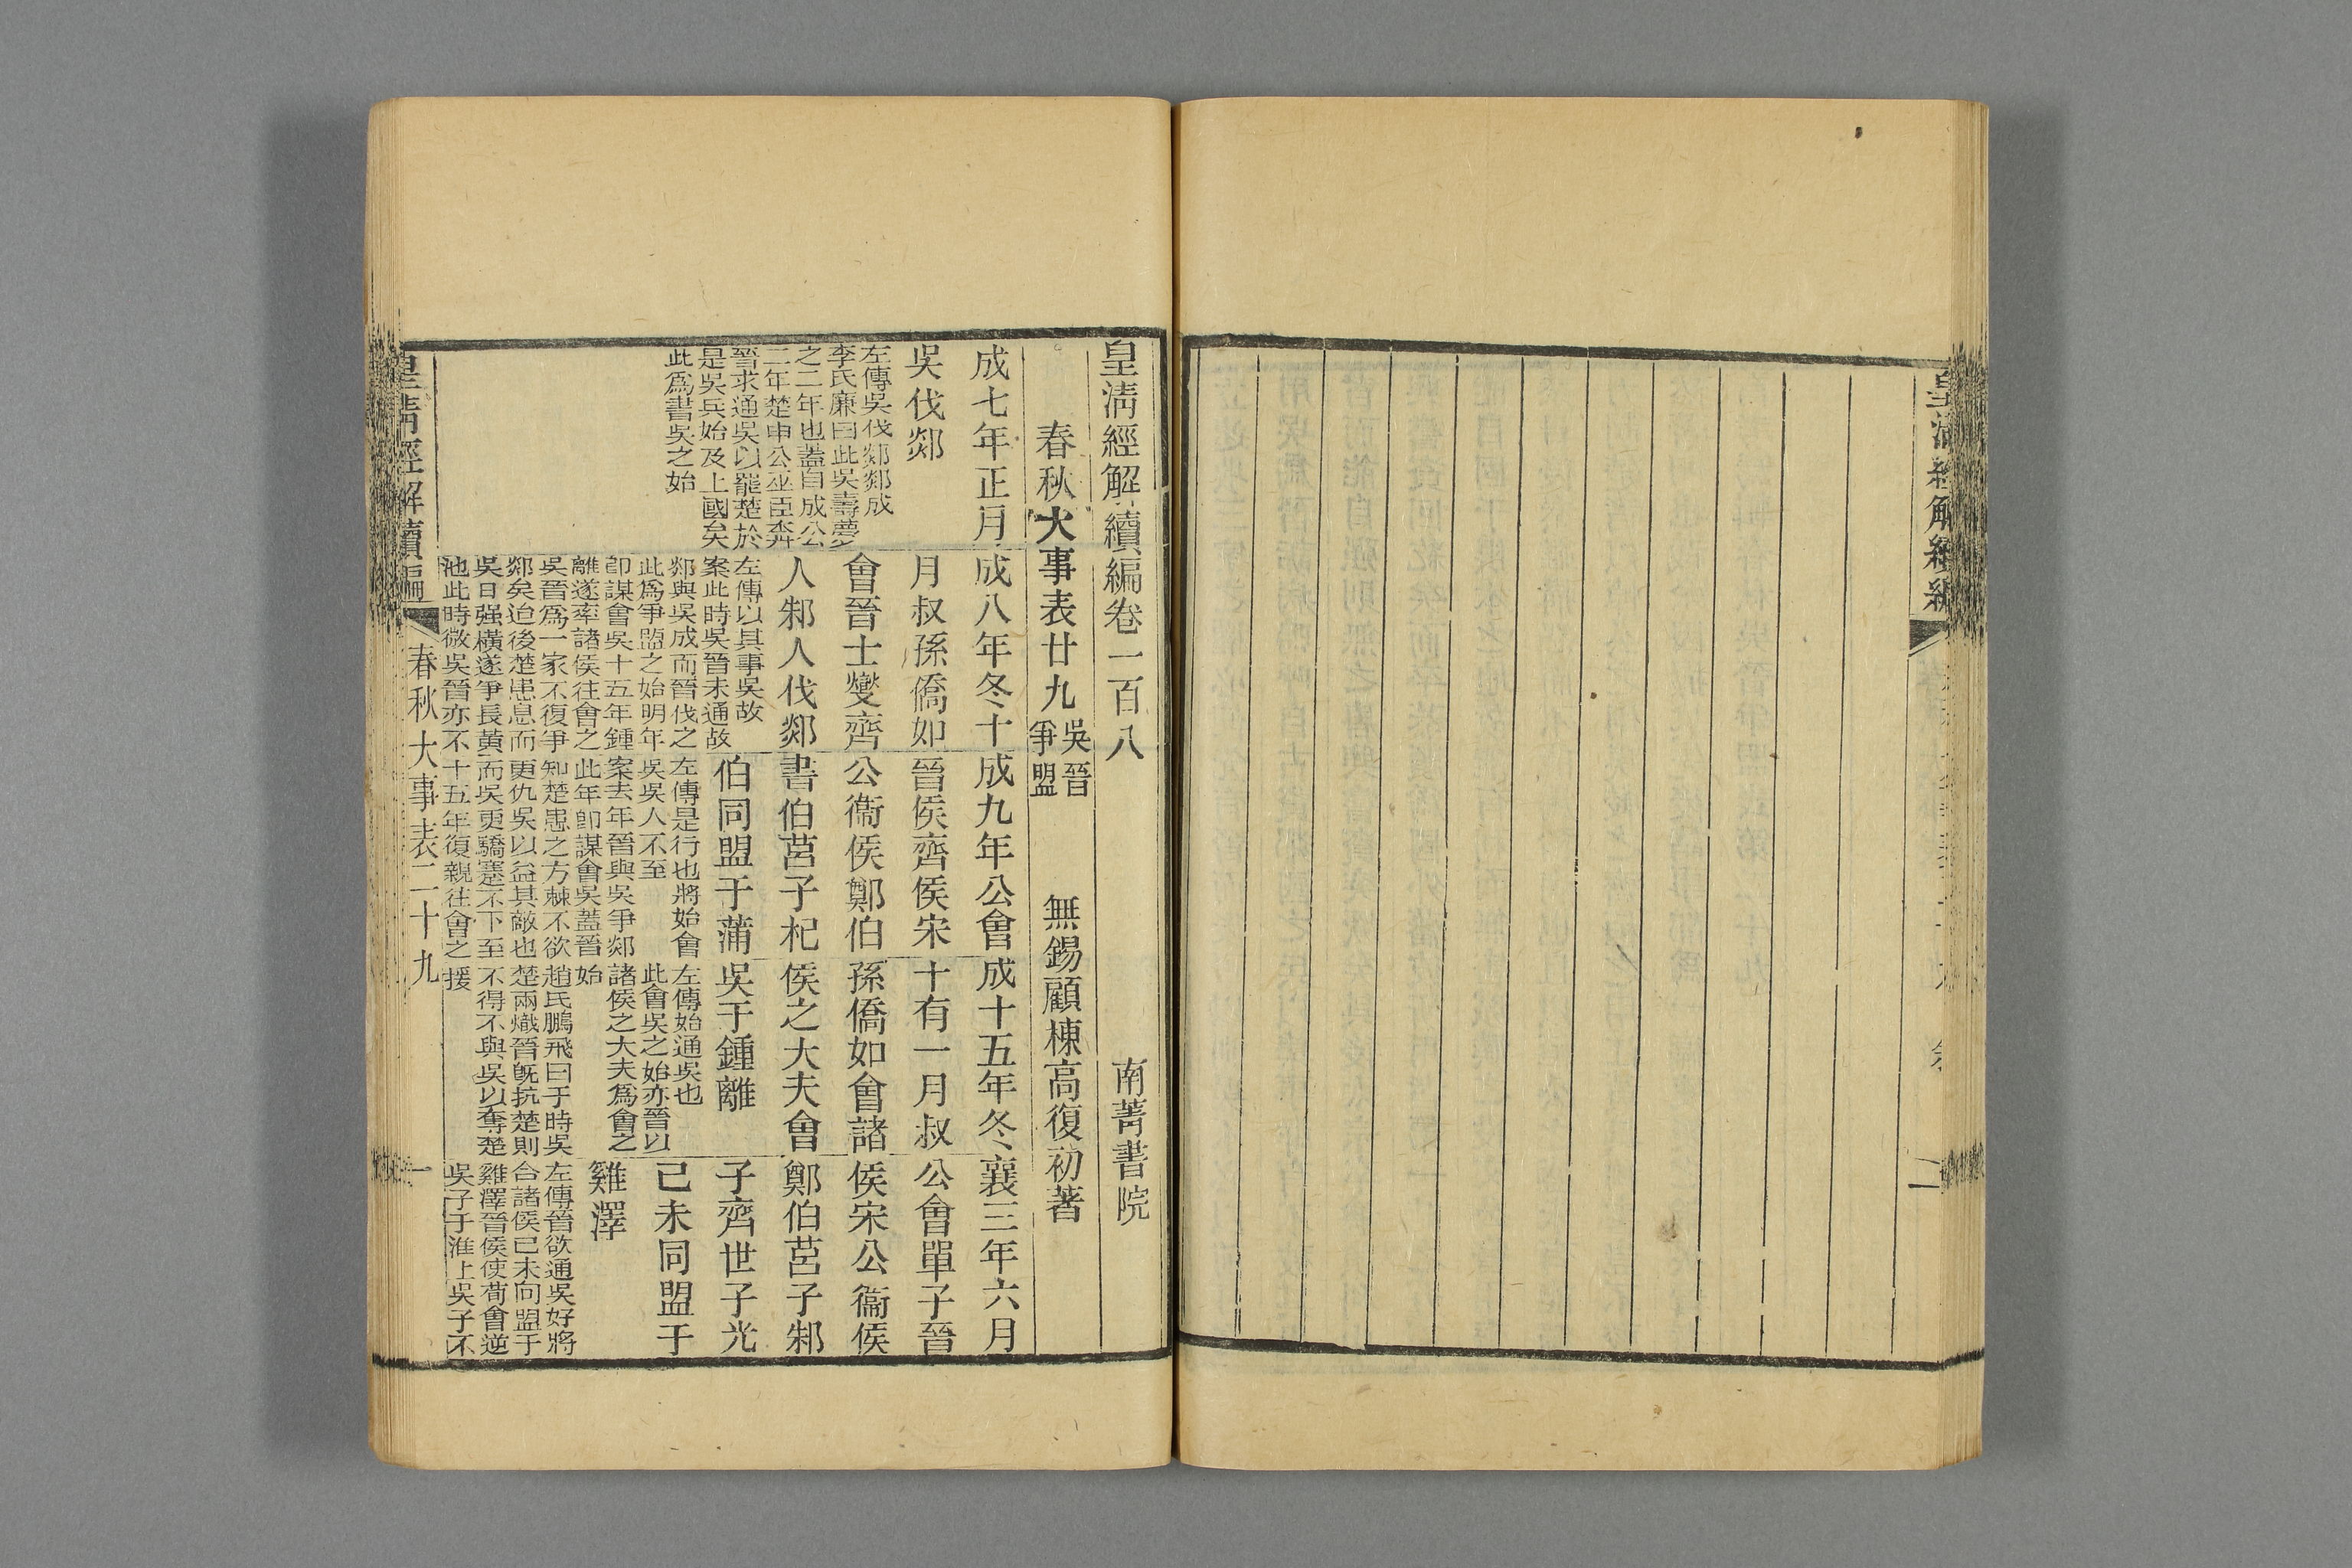 皇清經解續編
二
皇清經解續編卷一百八
南菁書院
春秋大事表廿九
吳晉
爭盟
無錫顧棟高復初著
成七年正月
吳伐郯
左傳吳伐郯郯成
李氏廉曰此吳壽夢
之二年也蓋自成公
二年楚申公巫臣奔
晉求通吳以罷楚於
是吳兵始及上國矣
此爲書吳之始
成八年冬十
月叔孫僑如
會晉士燮齊
人邾人伐郯
左傳以其事吳故
案此時吳晉未通故
郯與吳成而晉伐之
此爲爭盟之始明年
卽謀會吳十五年鍾
離遂率諸侯往會之
吳晉爲一家不復爭
郯矣迨後楚患息而
吳日强橫遂爭長黃
池此時微吳晉亦不
成九年公會
晉侯齊侯宋
公衞侯鄭伯
曹伯莒子杞
伯同盟于蒲
左傳是行也將始會
吳吳人不至
案去年晉與吳爭郯
此年卽謀會吳蓋晉
知楚患之方棘不欲
更仇吳以益其敵也
而吳更驕蹇不下至
十五年復親往會之
成十五年冬
十有一月叔
孫僑如會諸
侯之大夫會
吳于鍾離
左傳始通吳也
此會吳之始亦晉以
諸侯之大夫爲會之
始
趙氏鵬飛曰于時吳
楚兩熾晉旣抗楚則
不得不與吳以奪楚
援
襄三年六月
公會單子晉
侯宋公衞侯
鄭伯莒子邾
子齊世子光
己未同盟于
雞澤
左傳晉欲通吳好將
合諸侯己未同盟于
雞澤晉侯使荀會逆
吳子于淮上吳子不
皇清經解續編
春秋大事表二十九
一